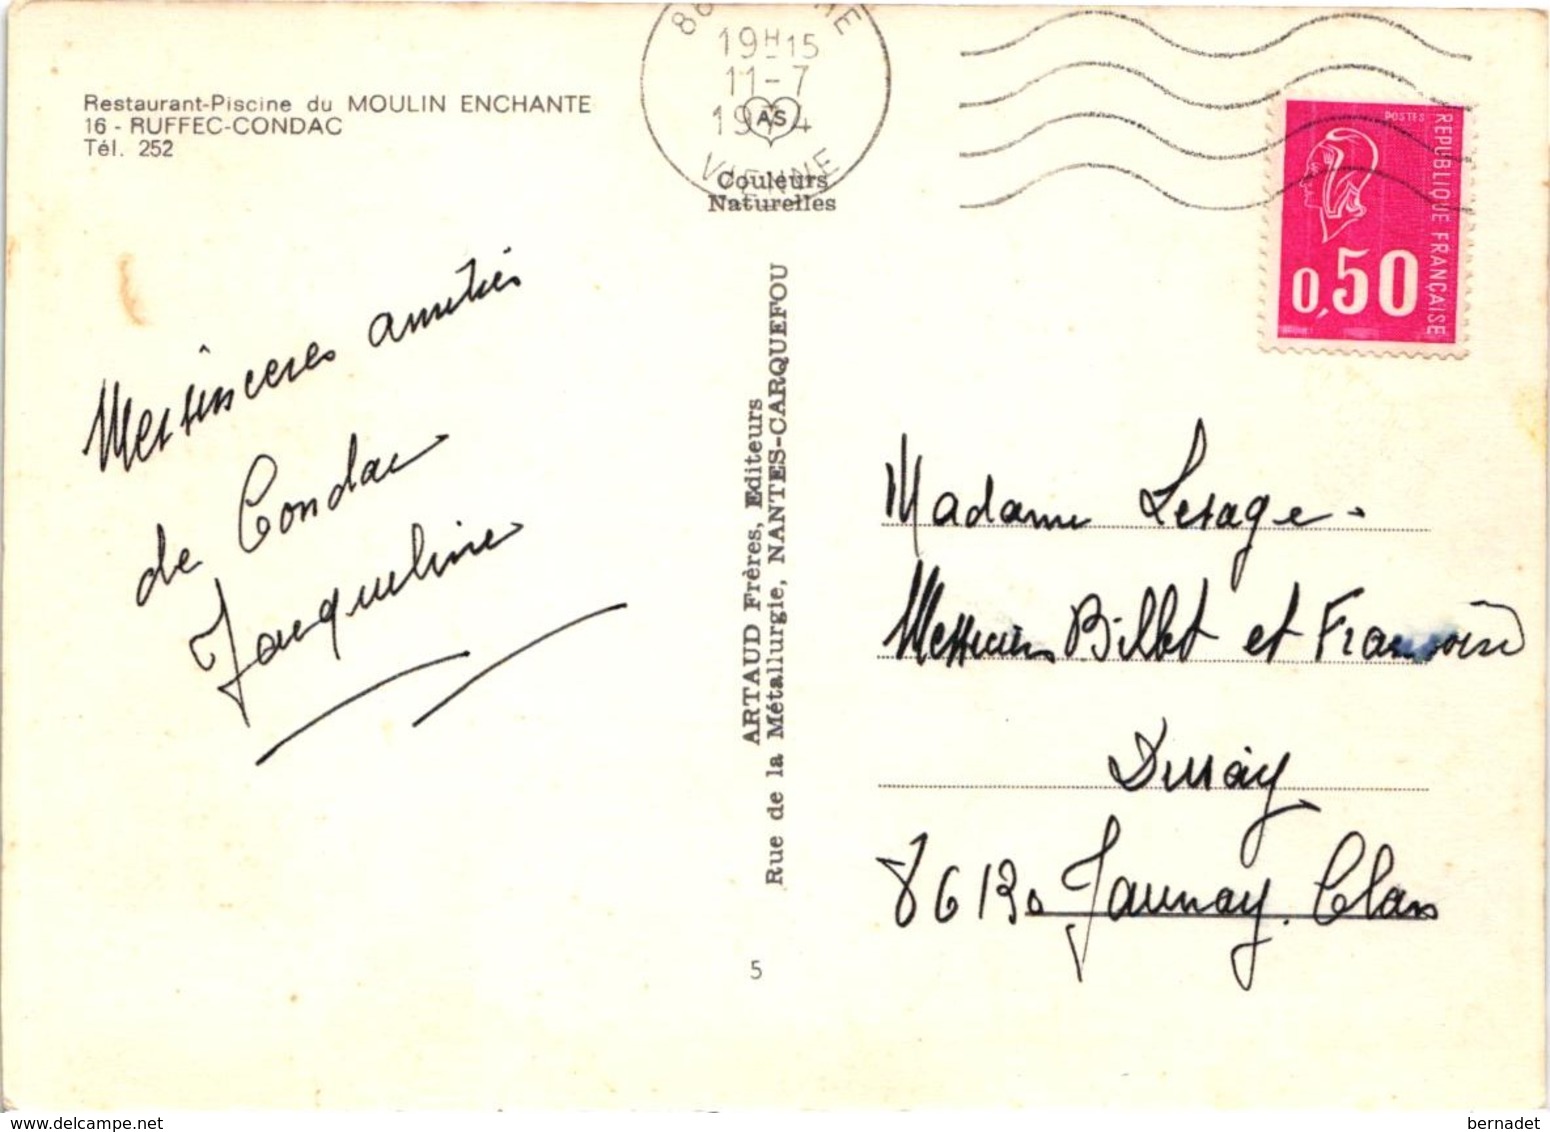 Restaurant-Piscine du MOULIN ENCHANTE
16 - RUFFEC-CONDAC
Tél. 252
19H15
11-7
1974
AS
VIENNE
Couleurs
Naturelles
POSTES
REPUBLIQUE FRANÇAISE
0,50
Mes sinceres amitiés
de Condac
Jacqueline
ARTAUD Frères, Editeurs
Rue de la Métallurgie, NANTES-CARQUEFOU
5
Madame Lesage.
Messieurs Billet et
Dussay
86130 Jaunay. Clan
delcampe.net
bernadet